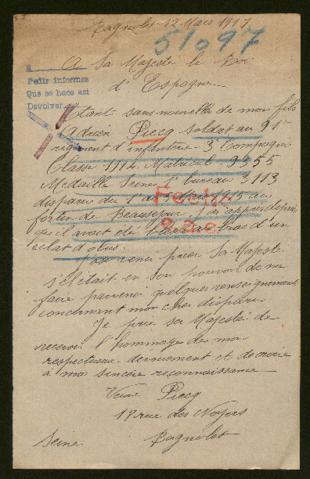 Bagnolet 12 Mars 1917
51097
A Sa Majesté le Roi
d'Espagne
Pedir informes
Que se hace asi
Devolver
Etant sans nouvelle de mon fils
Adrien Piecq soldat au 91e
regiment d'infanterie 3 Compagnie
Classe 1914 Matricule 9355
Medaille Seine 1 bureau 3113
disparu du 1 au 1915 au
fortin de Beausejour j'ai appris depuis
qu'il avait été blessé au bras d'un
eclat d'obus
Je viens prier Sa Majesté
s'il était en son pouvoir de me
faire parvenir quelques renseignements
concernant mon cher disparu
Je prie Sa Majesté de
recevoir l'hommage de mon
respectueux devouement et de croire
à ma sincère reconnaissance
Veuve Piecq
17 rue des Noyers
Seine Bagnolet